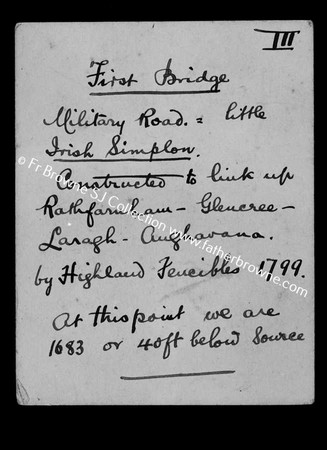 III
First Bridge
Military Road. = little
Irish Simplon.
Constructed to link up
Rathfarnham - Glencree -
Laragh - Aughavana.
by Highland Fencibles 1799.
At this point we are
1683 or 40ft below Source
© Fr Browne SJ Collection www.fatherbrowne.com